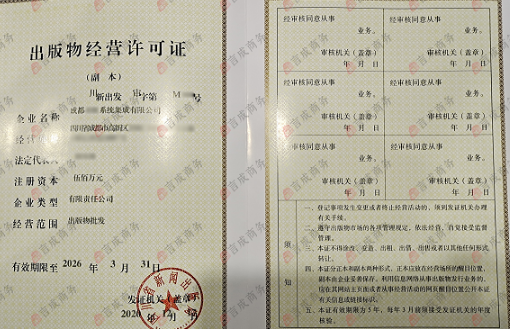 出版物经营许可证
（副 本）
川 新出发 字第 M 号
企业名称 成都 系统集成有限公司
经营 四川省成都市高新区
法定代表人
注册资本 伍佰万元
企业类型 有限责任公司
经营范围 出版物批发
有效期限至 2026 年 3 月 31 日
发证机关（盖章）
2020
经审核同意从事
业务。
审核机关（盖章）
年 月 日
经审核同意从事
业务。
审核机关（盖章）
年 月 日
经审核同意从事
业务。
审核机关（盖章）
年 月 日
经审核同意从事
业务。
审核机关（盖章）
年 月 日
经审核同意从事
业务。
审核机关（盖章）
年 月 日
经审核同意从事
业务。
审核机关（盖章）
年 月 日
须知
一、登记事项发生变更或者终止经营活动的，须到发证机关办理
有关手续。
二、遵守出版物市场的各项管理规定，依法经营，自觉接受监督
管理。
三、本证不得涂改、变造、出租、出借、出售或以其他任何形式
转让。
四、本证分正本和副本两种形式，正本应放在经营场所的醒目位置，
副本由企业妥善保存。利用信息网络从事出版物发行业务的，
应在其网站主页面或者从事经营活动的网页醒目位置公开本证
有关信息或链接标识。
五、本证有效期限为5年，每年3月前须接受发证机关的年度
核验。
百成商务